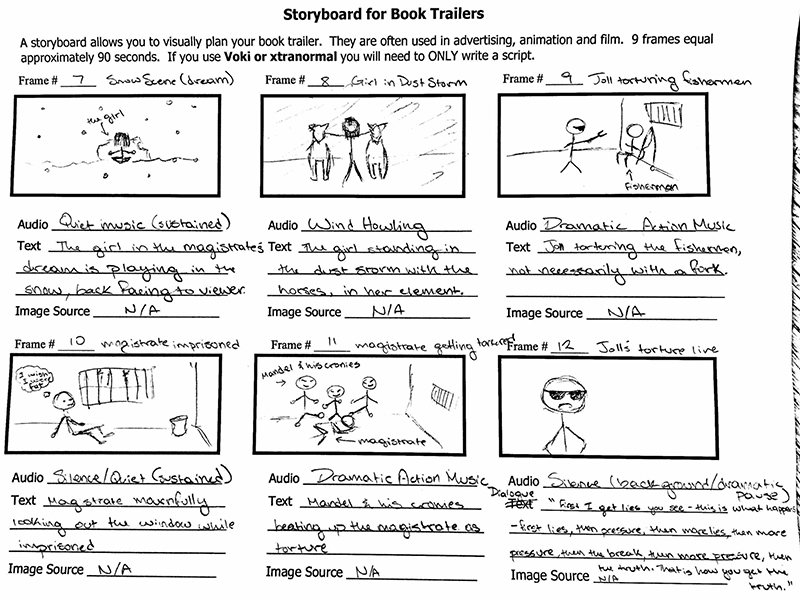 Storyboard for Book Trailers
A storyboard allows you to visually plan your book trailer. They are often used in advertising, animation and film. 9 frames equal
approximately 90 seconds. If you use Voki or xtranormal you will need to ONLY write a script.
Frame # 7 Snow Scene (dream)
the girl
Audio Quiet music (sustained)
Text The girl in the magistrates
dream is playing in the
snow, back facing to viewer.
Image Source N/A
Frame # 8 Girl in Dust Storm
Audio Wind Howling
Text The girl standing in
the dust storm with the
horses, in her element.
Image Source N/A
Frame # 9 Joll torturing fishermen
Fisherman
Audio Dramatic Action Music
Text Joll torturing the fishermen,
not necessarily with a fork.
Image Source N/A
Frame # 10 magistrate imprisoned
I wish
I were
Audio Silence/Quiet (sustained)
Text Magistrate mournfully
looking out the window while
imprisoned
Image Source N/A
Frame # 11 magistrate getting tortured
Mandel & his cronies
magistrate
Audio Dramatic Action Music
Text Mandel & his cronies
beating up the magistrate as
torture
Image Source N/A
Frame # 12 Joll's torture line
Audio Silence (background/dramatic
pause)
Dialogue
Text "First I get lies you see - this is what happens
- first lies, then pressure, then more lies, then more
pressure, then the break, then more pressure, then
the truth. That is how you get the
truth."
Image Source N/A